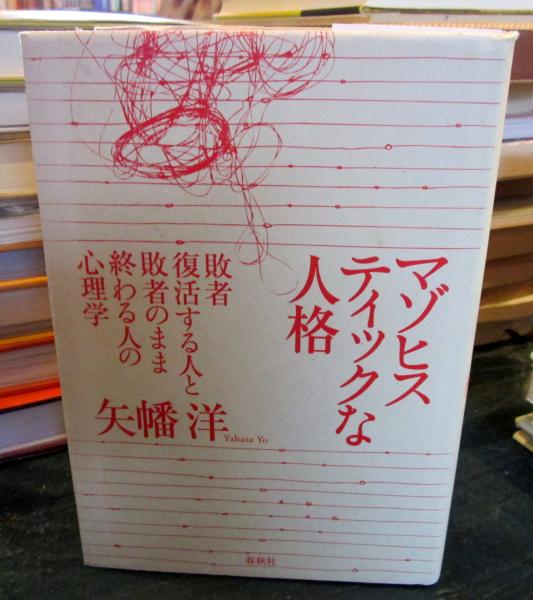 マゾヒス
ティックな
人格
敗者
復活する人と
敗者のまま
終わる人の
心理学
矢幡 洋
Yahata Yo
春秋社